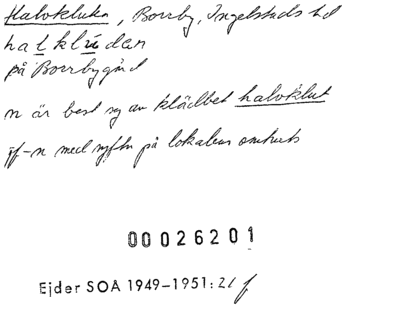 Halvkluka, Borrby, Ingelstads hd
halklúdan
på Borrbygård
n är best sg av klädbet halvklut
jf-n med syftn på lokalens
00026201
Ejder SOA 1949–1951: 21 f